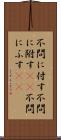 不問に付す不問
に附す不問
にふす